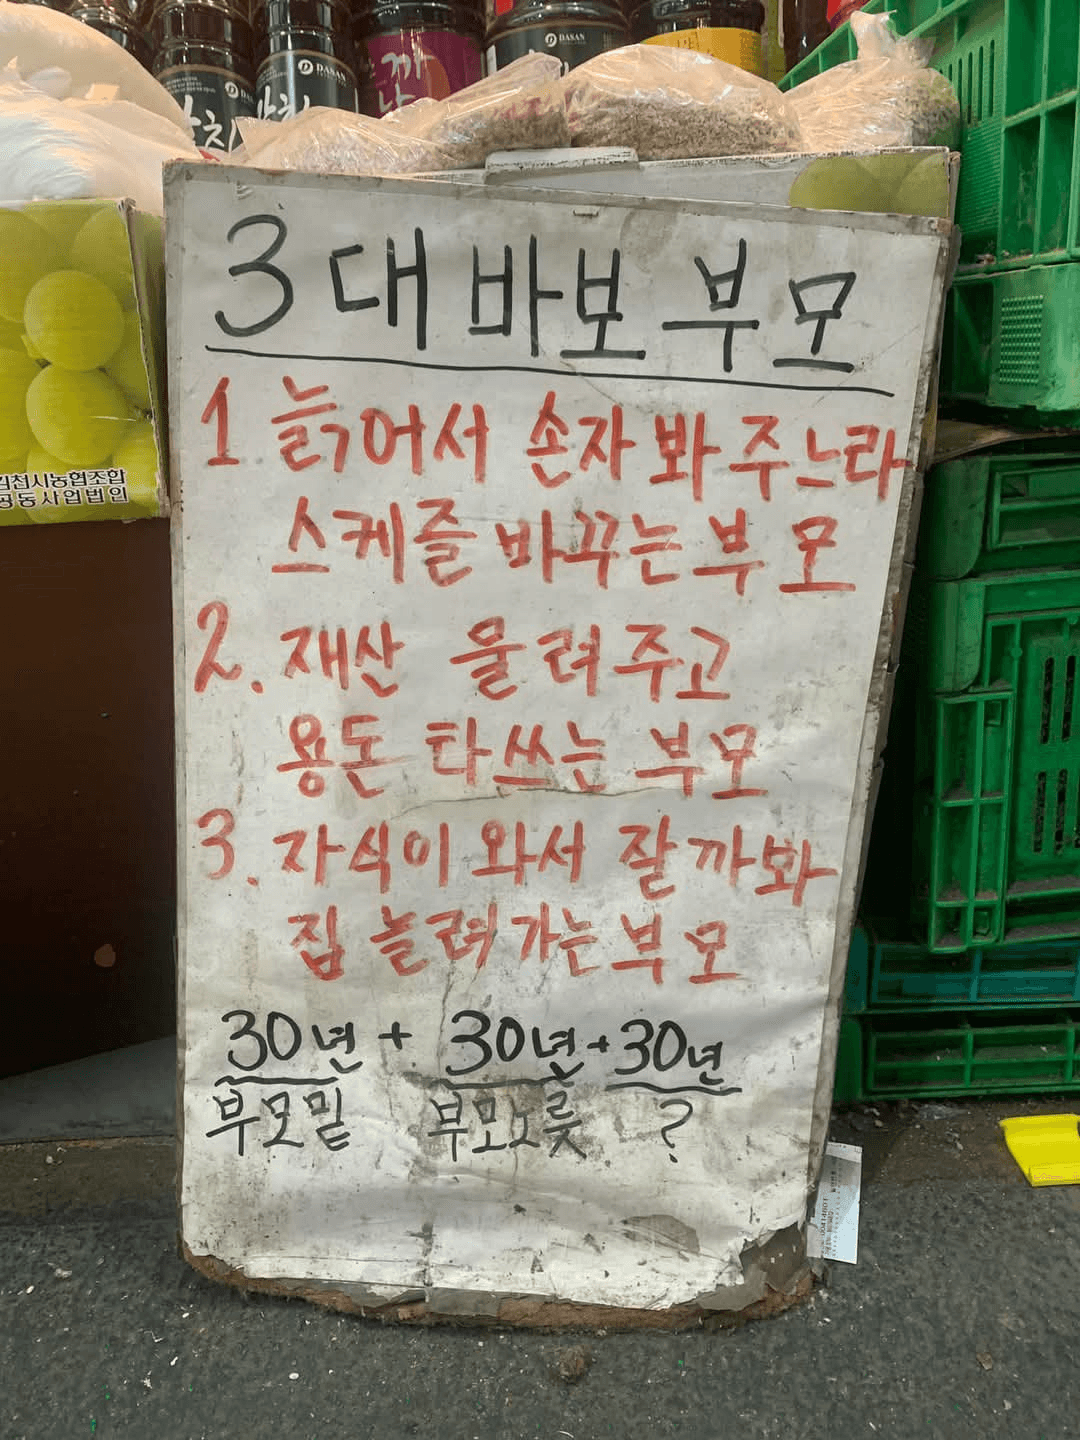 DASAN
DASAN
3대 바보 부모
1 늙어서 손자 봐 주느라
스케즐 바꾸는 부모
2. 재산 물려주고
용돈 타쓰는 부모
3. 자식이 와서 잘까봐
집 늘려가는 부모
30년 + 30년 + 30년
부모밑 부모노릇 ?
김천시농협조합
공동사업법인